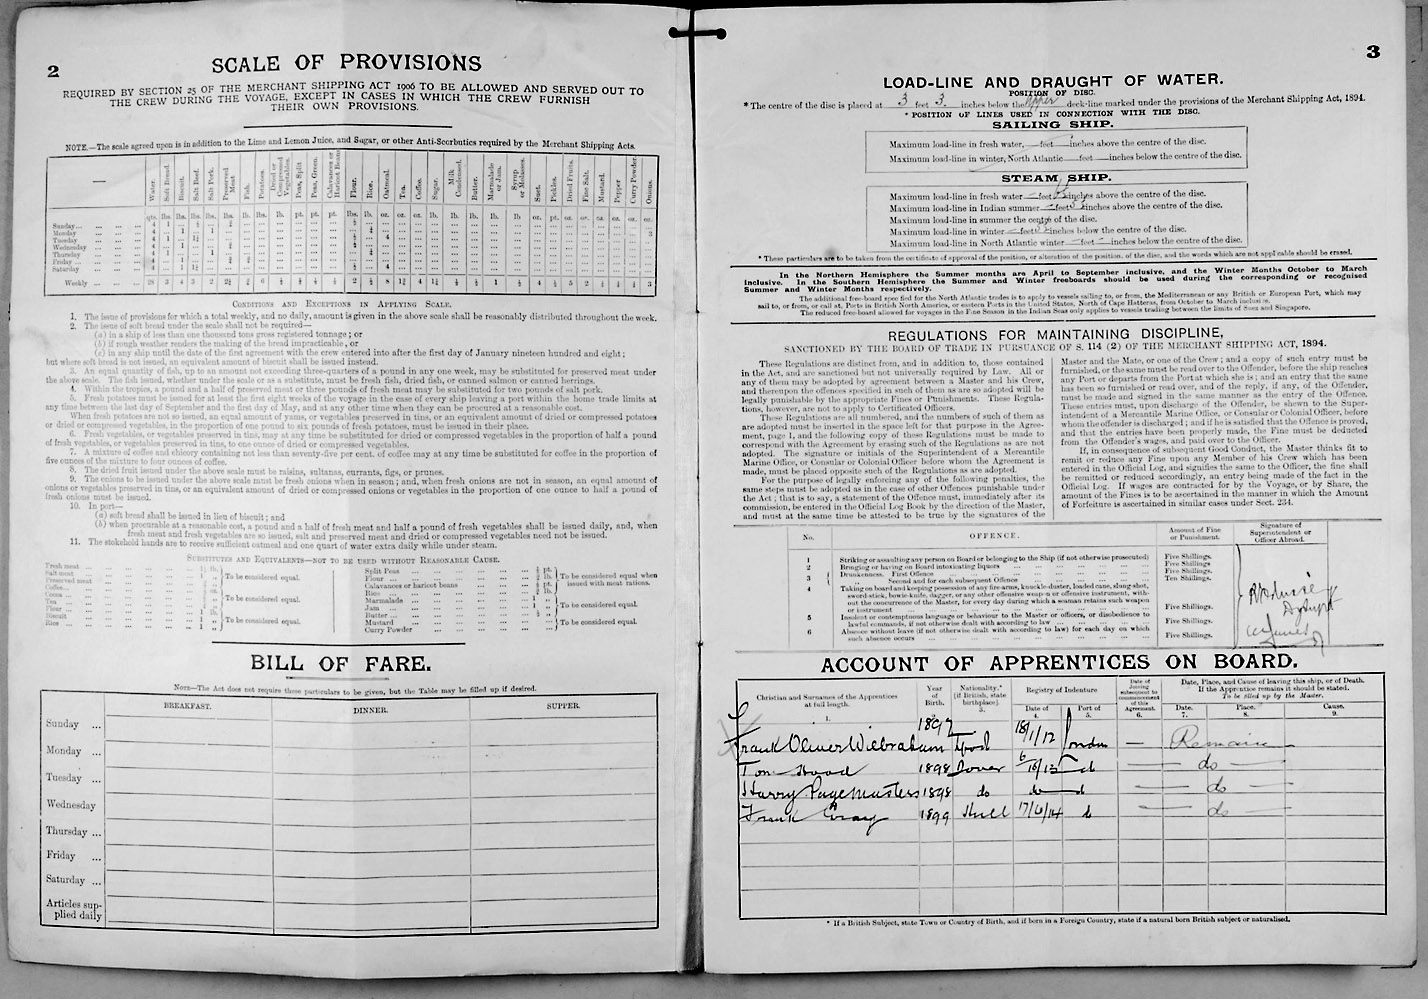 2
SCALE OF PROVISIONS
REQUIRED BY SECTION 25 OF THE MERCHANT SHIPPING ACT 1906 TO BE ALLOWED AND SERVED OUT TO
THE CREW DURING THE VOYAGE, EXCEPT IN CASES IN WHICH THE CREW FURNISH
THEIR OWN PROVISIONS.
NOTE.—The scale agreed upon is in addition to the Lime and Lemon Juice, and Sugar, or other Anti-Scorbutics required by the Merchant Shipping Acts.
— Water. Soft Bread. Biscuit. Salt Beef. Salt Pork. Preserved Meat. Fish. Potatoes. Dried or Compressed Vegetables. Peas, Split Peas, Green. Calavances or Haricot Beans Flour. Rice. Oatmeal. Tea. Coffee. Sugar. Milk Condensed. Butter. Marmalade or Jam. Syrup or Molasses. Suet. Pickles. Dried Fruits. Fine Salt. Mustard. Pepper Curry Powder. Onions.
qts. lbs. lbs. lbs. lbs. lbs. lb. lbs. lb. pt. pt. pt. lbs. lb. oz. oz. oz. lb. lb. lb. lb. lb oz. pt. oz. oz. oz. oz. oz. oz.
Sunday
Monday
Tuesday
Wednesday
Thursday
Friday
Saturday
Weekly
CONDITIONS AND EXCEPTIONS IN APPLYING SCALE.
1. The issue of provisions for which a total weekly, and no daily, amount is given in the above scale shall be reasonably distributed throughout the week.
2. The issue of soft bread under the scale shall not be required—
(a) in a ship of less than one thousand tons gross registered tonnage; or
(b) if rough weather renders the making of the bread impracticable, or
(c) in any ship until the date of the first agreement with the crew entered into after the first day of January nineteen hundred and eight;
but where soft bread is not issued, an equivalent amount of biscuit shall be issued instead.
3. An equal quantity of fish, up to an amount not exceeding three-quarters of a pound in any one week, may be substituted for preserved meat under
the above scale. The fish issued, whether under the scale or as a substitute, must be fresh fish, dried fish, or canned salmon or canned herrings.
4. Within the tropics a pound and a half of preserved meat or three pounds of fresh meat may be substituted for two pounds of salt pork.
5. Fresh potatoes must be issued for at least the first eight weeks of the voyage in the case of every ship leaving a port within the home trade limits at
any time between the last day of September and the first day of May, and at any other time when they can be procured at a reasonable cost.
When fresh potatoes are not so issued, an equal amount of yams, or vegetables preserved in tins, or an equivalent amount of dried or compressed potatoes
or dried or compressed vegetables, in the proportion of one pound to six pounds of fresh potatoes, must be issued in their place.
6. Fresh vegetables, or vegetables preserved in tins, may at any time be substituted for dried or compressed vegetables in the proportion of half a pound
of fresh vegetables, or vegetables preserved in tins, to one ounce of dried or compressed.
7. A mixture of coffee and chicory containing not less than seventy-five per cent. of coffee may at any time be substituted for coffee in the proportion of
five ounces of the mixture to four ounces of coffee.
8. The dried fruit issued under the above scale must be raisins, sultanas, currants, figs, or prunes.
9. The onions to be issued under the above scale must be fresh onions when in season; and, when fresh onions are not in season, an equal amount of
onions or vegetables preserved in tins, or an equivalent amount of dried or compressed onions or vegetables in the proportion of one ounce to half a pound of
fresh onions must be issued.
10. In port—
(a) soft bread shall be issued in lieu of biscuit; and
(b) when procurable at a reasonable cost, a pound and a half of fresh meat and half a pound of fresh vegetables shall be issued daily, and, when
fresh meat and fresh vegetables are so issued, salt and preserved meat and dried or compressed vegetables need not be issued.
11. The stokehold hands are to receive sufficient oatmeal and one quart of water extra daily while under steam.
SUBSTITUTES AND EQUIVALENTS—NOT TO BE USED WITHOUT REASONABLE CAUSE.
Fresh meat
Salt meat
Preserved meat
To be considered equal.
Coffee
Cocoa
Tea
To be considered equal.
Flour
Biscuit
Rice
To be considered equal.
Split Peas
Flour
Calavances or haricot beans
Rice
To be considered equal when
issued with meat rations.
Marmalade
Jam
Butter
To be considered equal.
Mustard
Curry Powder
To be considered equal.
BILL OF FARE.
NOTE—The Act does not require these particulars to be given, but the Table may be filled up if desired.
BREAKFAST. DINNER. SUPPER.
Sunday ...
Monday ...
Tuesday ...
Wednesday
Thursday ...
Friday ...
Saturday ...
Articles sup-
plied daily
3
LOAD-LINE AND DRAUGHT OF WATER.
POSITION OF DISC.
* The centre of the disc is placed at 3 feet 3. inches below the Upper deck-line marked under the provisions of the Merchant Shipping Act, 1894.
* POSITION OF LINES USED IN CONNECTION WITH THE DISC.
SAILING SHIP.
Maximum load-line in fresh water, — feet — inches above the centre of the disc.
Maximum load-line in winter, North Atlantic — feet — inches below the centre of the disc.
STEAM SHIP.
Maximum load-line in fresh water — feet inches above the centre of the disc.
Maximum load-line in Indian summer — feet inches above the centre of the disc.
Maximum load-line in summer the centre of the disc.
Maximum load-line in winter — feet inches below the centre of the disc.
Maximum load-line in North Atlantic winter — feet — inches below the centre of the disc.
* These particulars are to be taken from the certificate of approval of the position, or alteration of the position, of the disc, and the words which are not applicable should be erased.
In the Northern Hemisphere the Summer months are April to September inclusive, and the Winter Months October to March
inclusive. In the Southern Hemisphere the Summer and Winter freeboards should be used during the corresponding or recognised
Summer and Winter Months respectively.
The additional free-board specified for the North Atlantic trades is to apply to vessels sailing to, or from, the Mediterranean or any British or European Port, which may
sail to, or from, or call at, Ports in British North America, or eastern Ports in the United States, North of Cape Hatteras, from October to March inclusive.
The reduced free-board allowed for voyages in the Fine Season in the Indian Seas only applies to vessels trading between the limits of Suez and Singapore.
REGULATIONS FOR MAINTAINING DISCIPLINE,
SANCTIONED BY THE BOARD OF TRADE IN PURSUANCE OF S. 114 (2) OF THE MERCHANT SHIPPING ACT, 1894.
These Regulations are distinct from, and in addition to, those contained
in the Act, and are sanctioned but not universally required by Law. All or
any of them may be adopted by agreement between a Master and his Crew,
and thereupon the offences specified in such of them as are so adopted will be
legally punishable by the appropriate Fines or Punishments. These Regula-
tions, however, are not to apply to Certificated Officers.
These Regulations are all numbered, and the numbers of such of them as
are adopted must be inserted in the space left for that purpose in the Agree-
ment, page 1, and the following copy of these Regulations must be made to
correspond with the Agreement by erasing such of the Regulations as are not
adopted. The signature or initials of the Superintendent of a Mercantile
Marine Office, or Consular or Colonial Officer before whom the Agreement is
made, must be placed opposite such of the Regulations as are adopted.
For the purpose of legally enforcing any of the following penalties, the
same steps must be adopted as in the case of other Offences punishable under
the Act; that is to say, a statement of the Offence must, immediately after its
commission, be entered in the Official Log Book by the direction of the Master,
and must at the same time be attested to be true by the signatures of the
Master and the Mate, or one of the Crew; and a copy of such entry must be
furnished, or the same must be read over to the Offender, before the ship reaches
any Port or departs from the Port at which she is; and an entry that the same
has been so furnished or read over, and of the reply, if any, of the Offender,
must be made and signed in the same manner as the entry of the Offence.
These entries must, upon discharge of the Offender, be shewn to the Super-
intendent of a Mercantile Marine Office, or Consular or Colonial Officer, before
whom the offender is discharged; and if he is satisfied that the Offence is proved,
and that the entries have been properly made, the Fine must be deducted
from the Offender's wages, and paid over to the Officer.
If, in consequence of subsequent Good Conduct, the Master thinks fit to
remit or reduce any Fine upon any Member of his Crew which has been
entered in the Official Log, and signifies the same to the Officer, the fine shall
be remitted or reduced accordingly, an entry being made of the fact in the
Official Log. If wages are contracted for by the Voyage, or by Share, the
amount of the Fines is to be ascertained in the manner in which the Amount
of Forfeiture is ascertained in similar cases under Sect. 234.
No. OFFENCE. Amount of Fine or Punishment. Signature of Superintendent or Officer Abroad.
1 Striking or assaulting any person on Board or belonging to the Ship (if not otherwise prosecuted) Five Shillings.
2 Bringing or having on Board intoxicating liquors Five Shillings.
3 Drunkenness. First Offence Five Shillings.
Second and for each subsequent Offence Ten Shillings.
4 Taking on board and keeping possession of any fire-arms, knuckle-duster, loaded cane, slung-shot,
sword-stick, bowie-knife, dagger, or any other offensive weapon or offensive instrument, with-
out the concurrence of the Master, for every day during which a seaman retains such weapon
or instrument Five Shillings.
5 Insolent or contemptuous language or behaviour to the Master or officers, or disobedience to
lawful commands, if not otherwise dealt with according to law Five Shillings.
6 Absence without leave (if not otherwise dealt with according to law) for each day on which
such absence occurs Five Shillings.
ACCOUNT OF APPRENTICES ON BOARD.
Christian and Surnames of the Apprentices at full length. 1.
Year of Birth. 2.
Nationality.* (if British, state birthplace). 3.
Registry of Indenture
Date of 4. Port of 5.
Date of Joining subsequent to commencement of this Agreement. 6.
Date, Place, and Cause of leaving this ship, or of Death.
If the Apprentice remains it should be stated.
To be filled up by the Master.
Date. 7. Place. 8. Cause. 9.
Frank Oliver Wilbraham 1897 Lpool 18/1/12 London — Remains
Tom Hood 1898 Dover 6/10/13 do — do —
Harry Page Masters 1898 do do do — do —
Frank Gray 1899 Hull 17/6/14 do — do
* If a British Subject, state Town or Country of Birth, and if born in a Foreign Country, state if a natural born British subject or naturalised.